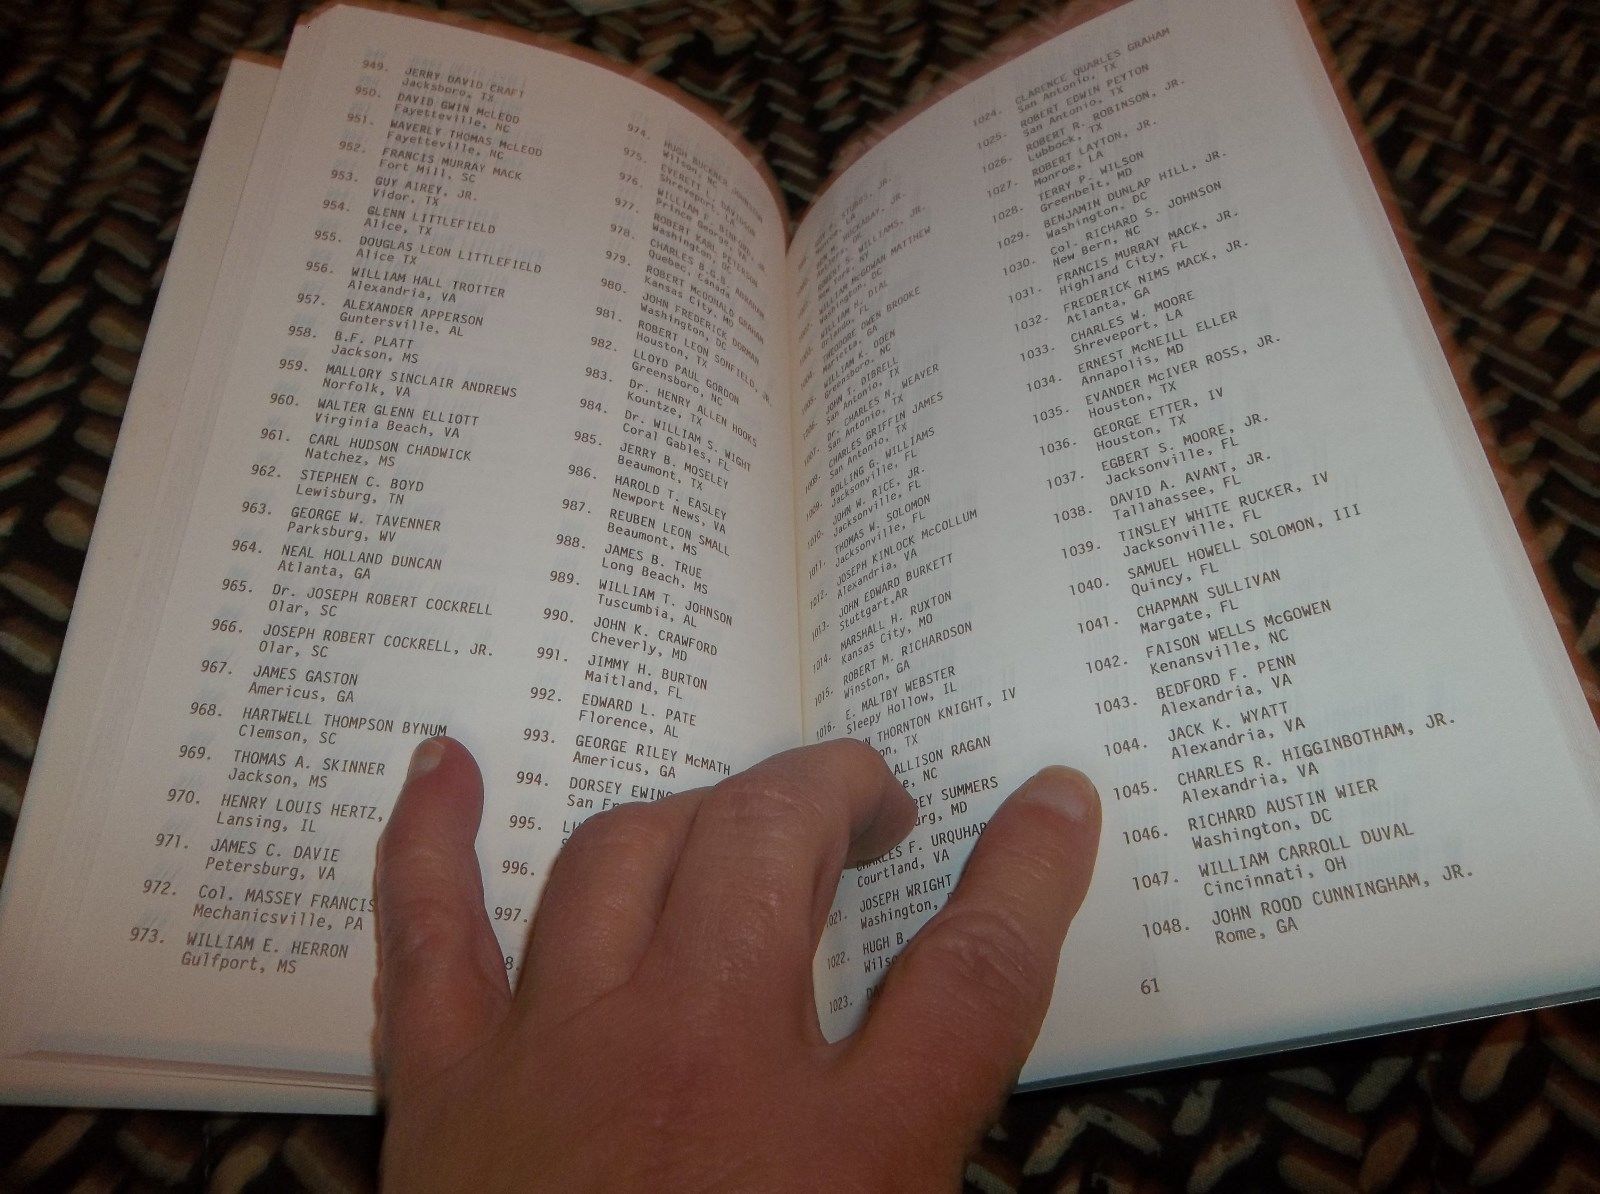 949. JERRY DAVID CRAFT
Jacksboro, TX
950. DAVID GWIN McLEOD
Fayetteville, NC
951. WAVERLY THOMAS McLEOD
Fayetteville, NC
952. FRANCIS MURRAY MACK
Fort Mill, SC
953. GUY AIREY, JR.
Vidor, TX
954. GLENN LITTLEFIELD
Alice, TX
955. DOUGLAS LEON LITTLEFIELD
Alice TX
956. WILLIAM HALL TROTTER
Alexandria, VA
957. ALEXANDER APPERSON
Guntersville, AL
958. B.F. PLATT
Jackson, MS
959. MALLORY SINCLAIR ANDREWS
Norfolk, VA
960. WALTER GLENN ELLIOTT
Virginia Beach, VA
961. CARL HUDSON CHADWICK
Natchez, MS
962. STEPHEN C. BOYD
Lewisburg, TN
963. GEORGE W. TAVENNER
Parksburg, WV
964. NEAL HOLLAND DUNCAN
Atlanta, GA
965. Dr. JOSEPH ROBERT COCKRELL
Olar, SC
966. JOSEPH ROBERT COCKRELL, JR.
Olar, SC
967. JAMES GASTON
Americus, GA
968. HARTWELL THOMPSON BYNUM
Clemson, SC
969. THOMAS A. SKINNER
Jackson, MS
970. HENRY LOUIS HERTZ,
Lansing, IL
971. JAMES C. DAVIE
Petersburg, VA
972. Col. MASSEY FRANCIS
Mechanicsville, PA
973. WILLIAM E. HERRON
Gulfport, MS
974. HUGH BUCKNER JOHNSTON
Wilson, NC
975. EVERETT L. DAVIDSON
Shreveport, LA
976. WILLIAM F.
Prince George, VA
977. ROBERT EARL PETERSON, JR.
Washington, DC
978. CHARLES B.G.B. ABRAHAM
Quebec, Canada
979. ROBERT McDONALD GRAHAM
Kansas City, MO
980. JOHN FREDERICK DORMAN
Washington, DC
981. ROBERT LEON SONFIELD, JR.
Houston, TX
982. LLOYD PAUL GORDON
Greensboro, NC
983. Dr. HENRY ALLEN HOOKS
Kountze, TX
984. Dr. WILLIAM S. WIGHT
Coral Gables, FL
985. JERRY B. MOSELEY
Beaumont, TX
986. HAROLD T. EASLEY
Newport News, VA
987. REUBEN LEON SMALL
Beaumont, MS
988. JAMES B. TRUE
Long Beach, MS
989. WILLIAM T. JOHNSON
Tuscumbia, AL
990. JOHN K. CRAWFORD
Cheverly, MD
991. JIMMY H. BURTON
Maitland, FL
992. EDWARD L. PATE
Florence, AL
993. GEORGE RILEY McMATH
Americus, GA
994. DORSEY EWING
San
995.
996.
997.
8.
STUBBS, JR.
LA
HUCKABAY, JR.
S. WILLIAMS, JR.
NY
WILLIAM McGOWAN MATTHEW
Washington, DC
WILLIAM N. DIAL
Orlando, FL
THEODORE OWEN BROOKE
Marietta, GA
WILLIAM K. ODEN
Greensboro, NC
JOHN T. DIBRELL
San Antonio, TX
1007. Dr. CHARLES N. WEAVER
San Antonio, TX
1008. CHARLES GRIFFIN JAMES
San Antonio, TX
1009. BOLLING G. WILLIAMS
Jacksonville, FL
1010. JOHN W. RICE, JR.
Jacksonville, FL
THOMAS W. SOLOMON
Jacksonville, FL
1012. JOSEPH KINLOCK McCOLLUM
Alexandria, VA
1013. JOHN EDWARD BURKETT
Stuttgart, AR
1014. MARSHALL H. RUXTON
Kansas City, MO
1015. ROBERT M. RICHARDSON
Winston, GA
1016. E. MALTBY WEBSTER
Sleepy Hollow, IL
THORNTON KNIGHT, IV
TX
ALLISON RAGAN
NC
SUMMERS
MD
CHARLES F.
Courtland, VA
1021. JOSEPH WRIGHT
Washington,
1022. HUGH B.
1023.
1024. CLARENCE QUARLES GRAHAM
San Antonio, TX
1025. ROBERT EDWIN PEYTON
San Antonio, TX
1026. ROBERT R. ROBINSON, JR.
Lubbock, TX
1027. ROBERT LAYTON, JR.
Monroe, LA
1028. TERRY P. WILSON
Greenbelt, MD
1029. BENJAMIN DUNLAP HILL, JR.
Washington, DC
1030. Col. RICHARD S. JOHNSON
New Bern, NC
1031. FRANCIS MURRAY MACK, JR.
Highland City, FL
1032. FREDERICK NIMS MACK, JR.
Atlanta, GA
1033. CHARLES W. MOORE
Shreveport, LA
1034. ERNEST McNEILL ELLER
Annapolis, MD
1035. EVANDER McIVER ROSS, JR.
Houston, TX
1036. GEORGE ETTER, IV
Houston, TX
1037. EGBERT S. MOORE, JR.
Jacksonville, FL
1038. DAVID A. AVANT, JR.
Tallahassee, FL
1039. TINSLEY WHITE RUCKER, IV
Jacksonville, FL
1040. SAMUEL HOWELL SOLOMON, III
Quincy, FL
1041. CHAPMAN SULLIVAN
Margate, FL
1042. FAISON WELLS McGOWEN
Kenansville, NC
1043. BEDFORD F. PENN
Alexandria, VA
1044. JACK K. WYATT
Alexandria, VA
1045. CHARLES R. HIGGINBOTHAM, JR.
Alexandria, VA
1046. RICHARD AUSTIN WIER
Washington, DC
1047. WILLIAM CARROLL DUVAL
Cincinnati, OH
1048. JOHN ROOD CUNNINGHAM, JR.
Rome, GA
61